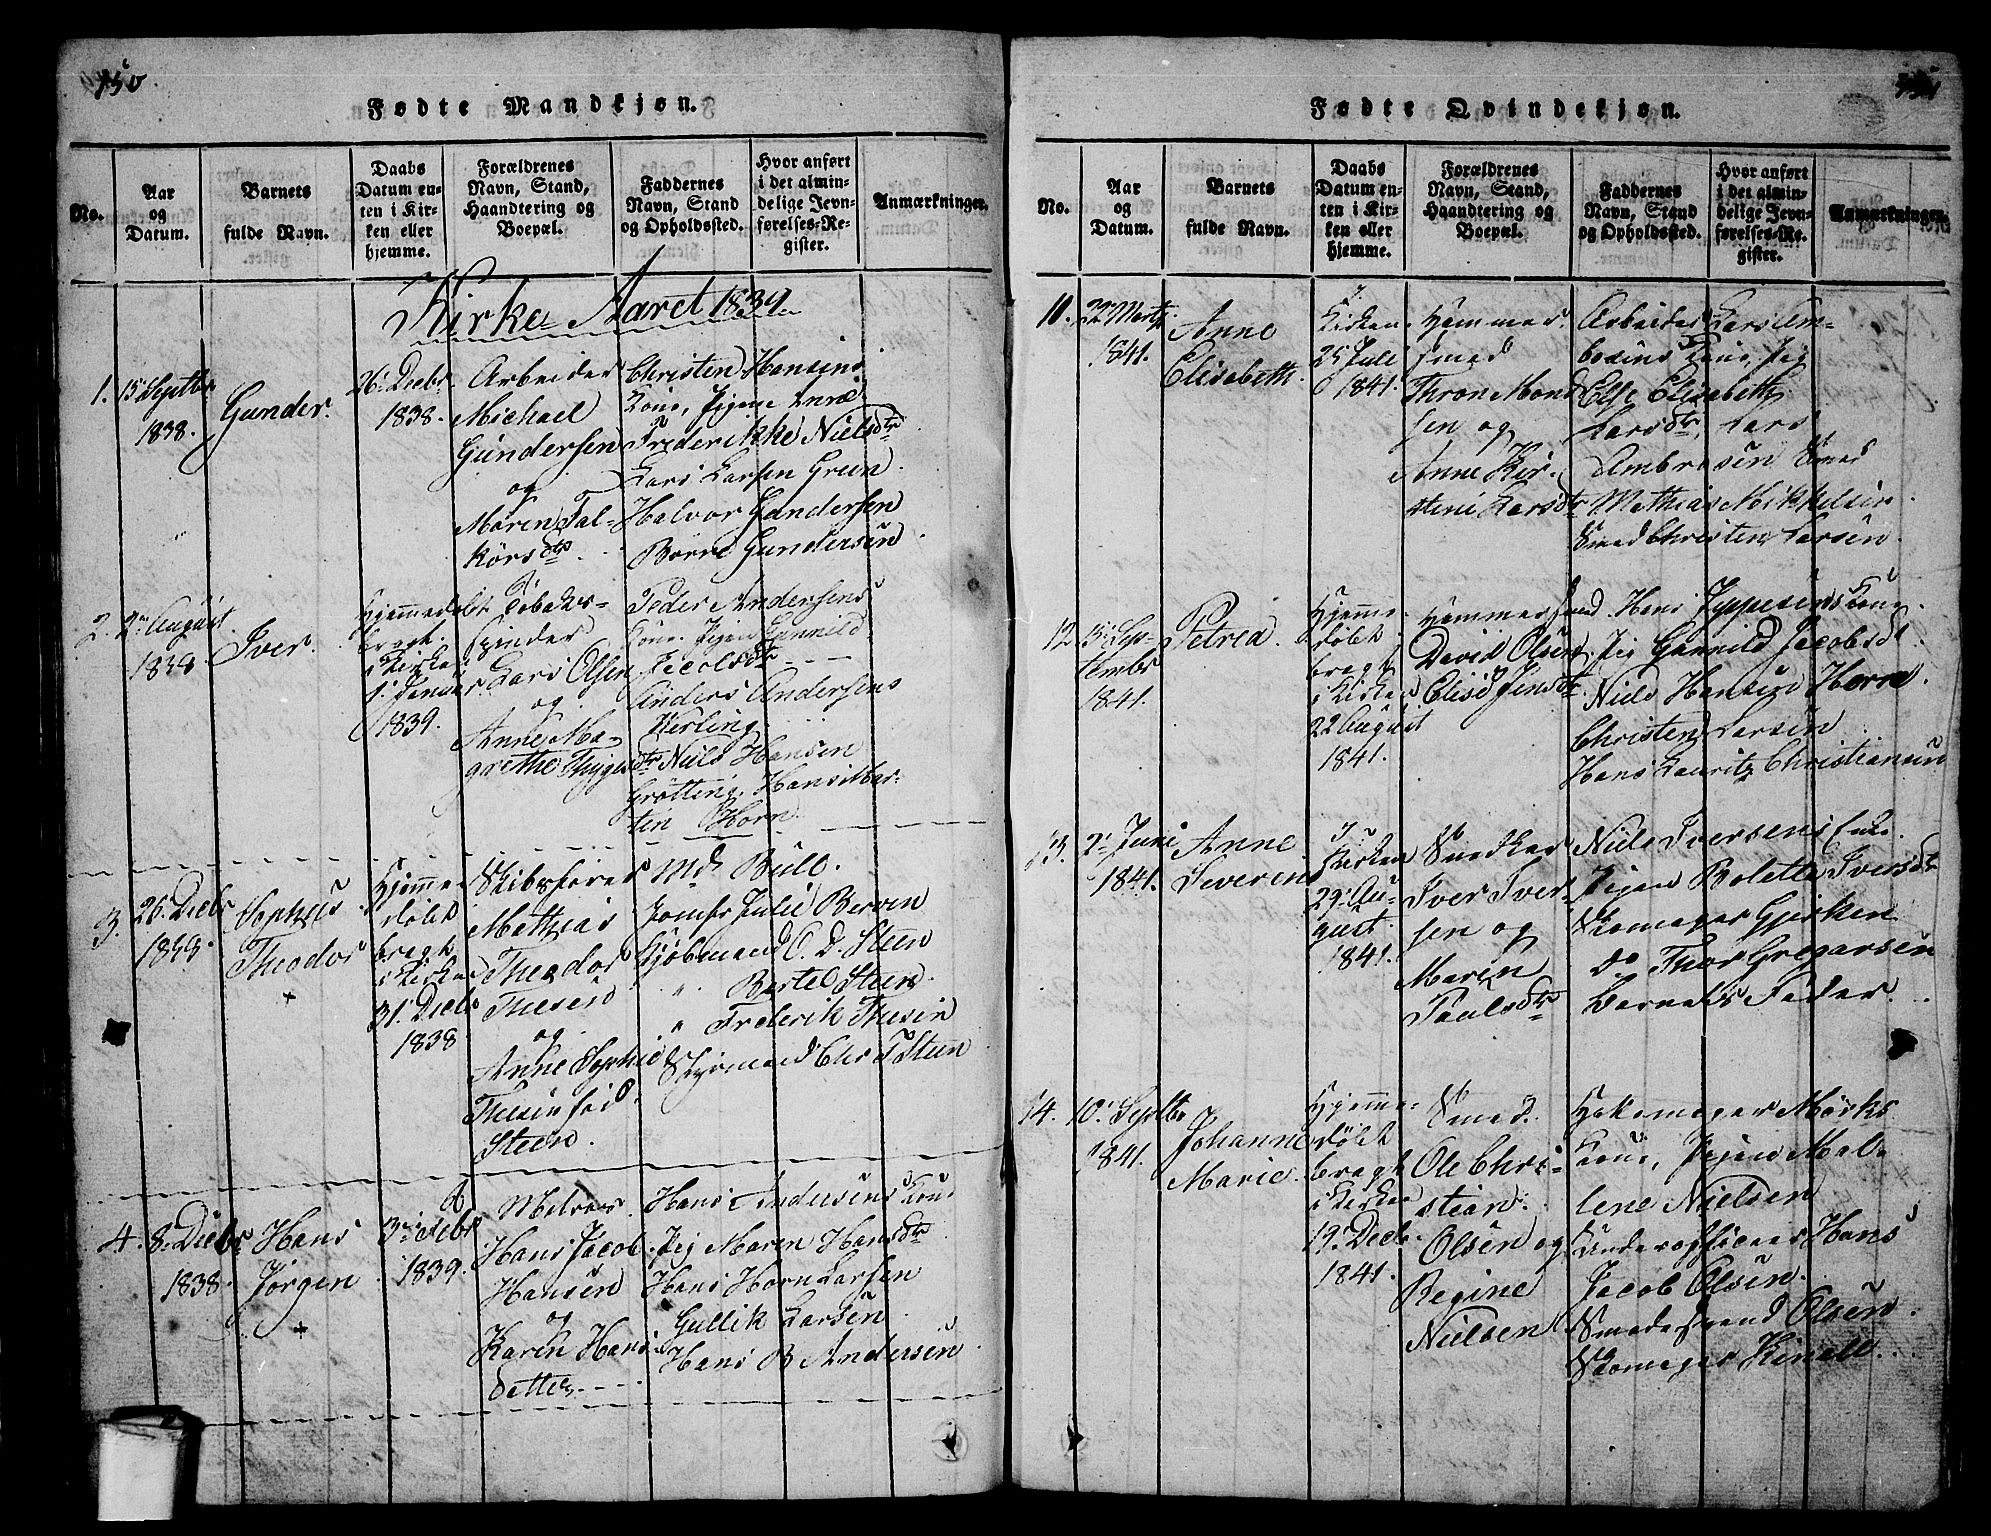 150
Fødte Mandkjøn.
No.
Aar og Datum.
Barnets fulde Navn.
Daabs Datum enten i Kirken eller hjemme.
Forældrenes Navn, Stand, Haandtering og Boepæl.
Faddernes Navn, Stand og Opholdssted.
Hvor anført i det almindelige Jevnførelses-Register.
Anmærkninger.
Kirke-Aaret 1839
1.
15 Septbr
1838.
Gunder.
26. Decbr.
1838.
Arbeider
Michael
Gundersen
og
Maren Tal-
körsdtr.
Christen Hansens
Kone, Pigen Anne
Frederikke Nielsdtr
Lars Larsen Green
Halvor Gundersen
Börre Gundersen
2.
2. August
1838
Iver.
Hjemmedøbt
bragt
i Kirken
1. Januar
1839.
Tobaks-
spinder
Lars Olsen
og
Anne Ma-
grethe Thygesdtr
Peder Andersens
Kone. Pigen Gunnild
Jacobsdtr
Anders Andersens
Kerling
Niels Hansen
Grötting, Hans Mar-
tin Horn
3.
26. Decbr
1839.
Sophus
Theodor
+
Hjemme-
døbt
bragt
i Kirken
31. Decbr
1838
Skibsfører
Mathias
Theodor
Thesen
og
Anne Sophie
Thesen fød
Steen.
Md Bull.
Jomfr Julie Berven
Kjøbmand C. D. Steen
" Bertel Steen
" Frederik Thesen
Styrmand Chr T Steen
4.
8. Decbr
1838.
Hans
Jørgen
+
3. Febr
1839.
Matros
Hans Jacob
Hansen
og
Karen Hans-
datter
Hans Andersens Kone
Pig Maren Hansdtr
Hans Horn Larsen
Gullik Larsen
Hans B Andersen
151
Fødte Qvindekjøn.
No.
Aar og Datum.
Barnets fulde Navn.
Daabs Datum enten i Kirken eller hjemme.
Forældrenes Navn, Stand, Haandtering og Boepæl.
Faddernes Navn, Stand og Opholdssted.
Hvor anført i det almindelige Jevnførelses-Register.
Anmærkninger.
11.
22 Marts
1841.
Anne
Elisabeth.
i
Kirken
25 Juli
1841.
Hammer-
smed
Thron Mond
sen og
Anne Kir-
stine Larsdtr
Arbeider Lars Am-
brosens Kone, Pig
Else Elisabeth
Larsdtr, Lars
Ambrosen Smed
Mathias Mikkelsen
Smed Christen Larsen.
12.
15. Sep-
tembr
1841.
Petrea.
Hjemme-
døbt
bragt
i Kirken
22 August
1841.
Hammersmed
David Olsen
Elise Jensdtr.
Hans Jeppesens Kone
Pig Gunnild Jacobsdt
Niels Hansen Horn
Christen Larsen
Hans Lauritz Christiansen
13.
2. Juni
1841.
Anne
Severine
i
Kirken
29. Au-
gust.
1841.
Snedker
Iver Iver-
sen og
Maren
Paulsdtr
Niels Iversens Enke.
Pigen Bolette Iversdt
Skomager Gjerken
Do Thor Gregersen
Barnets Fader.
14.
10. Septbr
1841.
Johanne
Marie.
Hjemme-
døbt
bragt
i Kirken
19. Decbr.
1841.
Smed.
Ole Chri-
stian
Olsen og
Regine
Nielsen
Hakemager Mørks
Kone, Pigen Mal-
lene Nielsen
Underofficeer Hans
Jacob Olsen.
Smedesvend Olsen
Skomager Kinall.